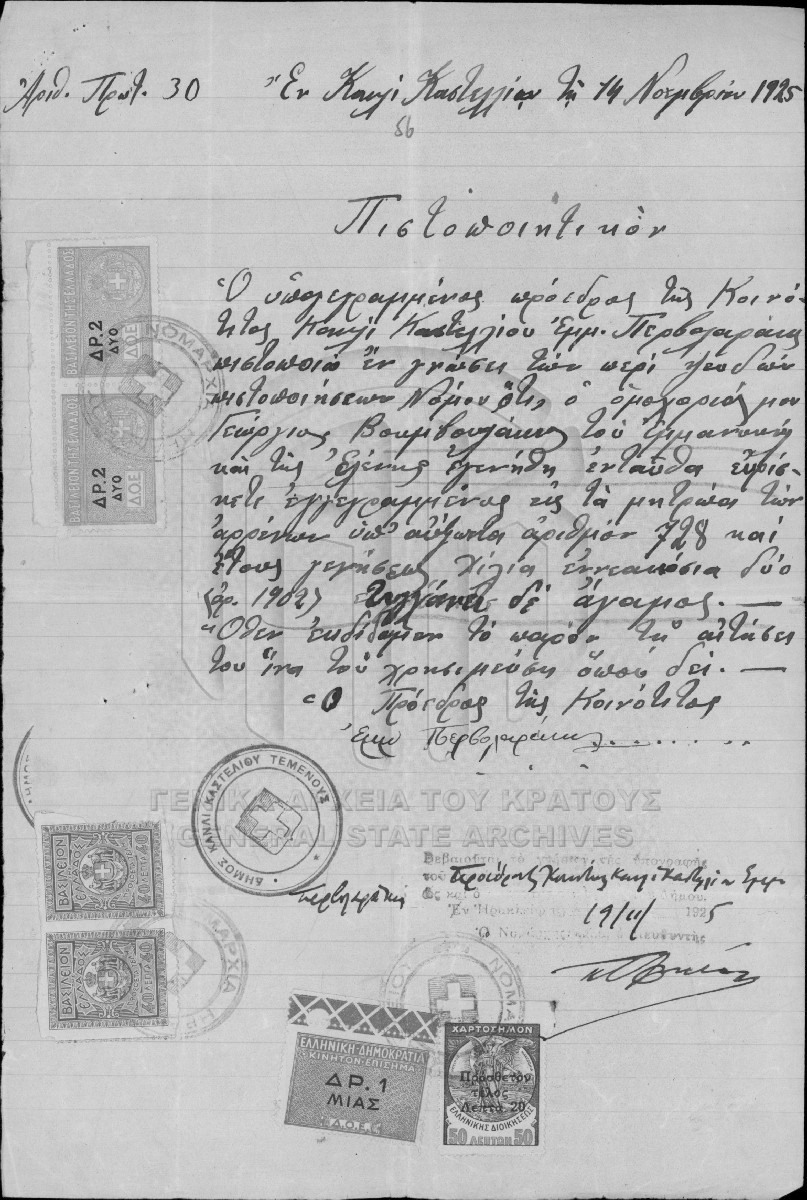 Ἀριθ. Πρωτ. 30 Ἐν Κανλί Καστελλίῳ τῇ 14 Νοεμβρίου 1925
56
Πιστοποιητικὸν
Ὁ ὑπογεγραμμένος πρόεδρος τῆς Κοινό-
τητος Κανλί Καστελλίου Ἐμμ. Περβολαράκης
πιστοποιῶ ἐν γνώσει τῶν περὶ ψευδῶν
πιστοποιήσεων Νόμου ὅτι, ὁ ὁμοχωριός μου
Γεώργιος Βουμβουλάκης τοῦ Ἐμμανουὴλ
καὶ τῆς Ἑλένης ἐγενήθη ἐνταῦθα εὑρίσ-
κετε ἐγγεγραμμένος εἰς τὰ μητρῶα τῶν
ἀρρένων ὑπ' αὔξοντα ἀριθμὸν 728 καὶ
ἔτους γενήσεως χίλια ἐννεακόσια δύο
(ἀρ. 1902) τυγχάνει δὲ ἄγαμος. —
Ὅθεν ἐκδίδομεν τὸ παρὸν τῇ αἰτήσει
του ἵνα τοῦ χρησιμεύσῃ ὅπου δεῖ. —
Ὁ Πρόεδρος τῆς Κοινότητος
Ἐμμ Περβολαράκης
ΒΑΣΙΛΕΙΟΝ ΤΗΣ ΕΛΛΑΔΟΣ
ΔΡ. 2
ΔΥΟ
ΔΟΕ
ΒΑΣΙΛΕΙΟΝ ΤΗΣ ΕΛΛΑΔΟΣ
ΔΡ. 2
ΔΥΟ
ΔΟΕ
ΝΟΜΑΡΧΙΑ
ΔΗΜΟΣ ΚΑΝΛΙ ΚΑΣΤΕΛΙΟΥ ΤΕΜΕΝΟΥΣ
ΓΕΝΙΚΑ ΑΡΧΕΙΑ ΤΟΥ ΚΡΑΤΟΥΣ
GENERAL STATE ARCHIVES
Βεβαιοῦται τὸ γνήσιον τῆς ὑπογραφῆς
τοῦ Προέδρου Κοινότητος Κανλί Καστελλίου Ἐμμ.
Περβολαράκη
Ἐν Ἡρακλείῳ 19/11/ 1925
Ὁ Νομάρχης
Διευθυντής
ΒΑΣΙΛΕΙΟΝ
ΕΛΛΑΔΟΣ
40 ΛΕΠΤΑ 40
ΒΑΣΙΛΕΙΟΝ
ΕΛΛΑΔΟΣ
40 ΛΕΠΤΑ 40
ΝΟΜΑΡΧΙΑ
ΕΛΛΗΝΙΚΗ·ΔΗΜΟΚΡΑΤΙΑ
ΚΙΝΗΤΟΝ·ΕΠΙΣΗΜΑ
ΔΡ. 1
ΜΙΑΣ
Δ.Ο.Ε.
ΧΑΡΤΟΣΗΜΟΝ
Πρόσθετον
τέλος
Λεπτά 20
ΕΛΛΗΝΙΚΗΣ ΔΙΟΙΚΗΣΕΩΣ
50 ΛΕΠΤΩΝ 50